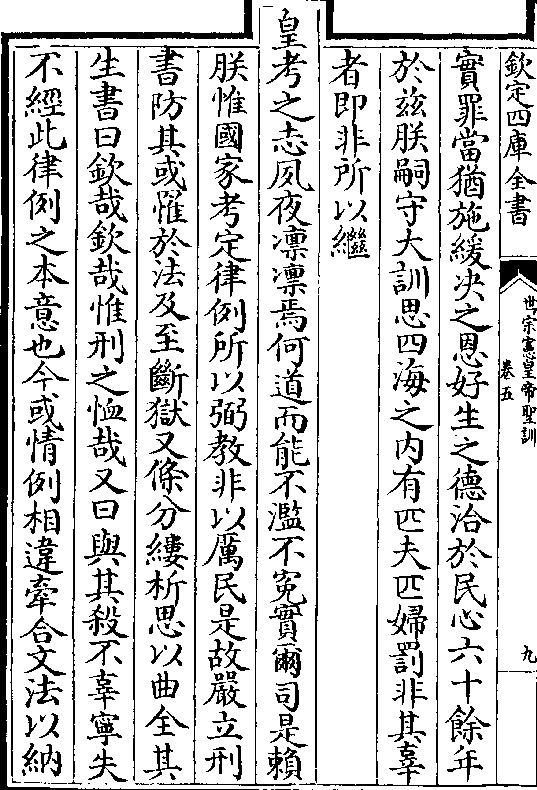 欽定四庫全書
世宗憲皇帝聖訓
卷五
九
實罪當猶施緩决之恩好生之德治於民心六十餘年
於兹朕嗣守大訓思四海之内有匹夫匹婦罰非其辜
者即非所以繼
皇考之志夙夜凛凛焉何道而能不濫不寃實爾司是賴
朕惟國家考定律例所以弼教非以厲民是故嚴立刑
書防其或罹於法及至斷獄又條分縷析思以曲全其
生書曰欽哉欽哉惟刑之恤哉又曰與其殺不辜寧失
不經此律例之本意也今或情例相違牽合文法以納